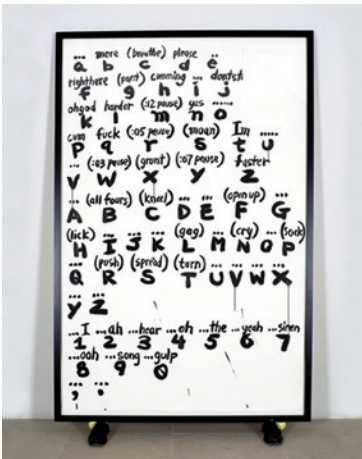 ... more (breathe) please ..
a b c d e
righthere (pant) cumming ... dontst
f g h i j
ohgod harder (:12 pause) yes ......
k l m n o
cum fuck (:05 pause) (moan) Im .....
p q r s t u
... (:03 pause) (grunt) (:07 pause) faster
v w x y z
... (all fours) (kneel) ... ... (open up) ...
A B C D E F G
(lick) ... ... ... (gag) ... (cry) ... (sock)
H I J K L M N O P
... (push) (spread) (turn) ... ... ... ...
Q R S T U V W X
... ...
Y Z
...I ...ah ...hear ...oh ...the ...yeah ...siren
1 2 3 4 5 6 7
...ooh ...song ...gulp
8 9 0
... ...
, .